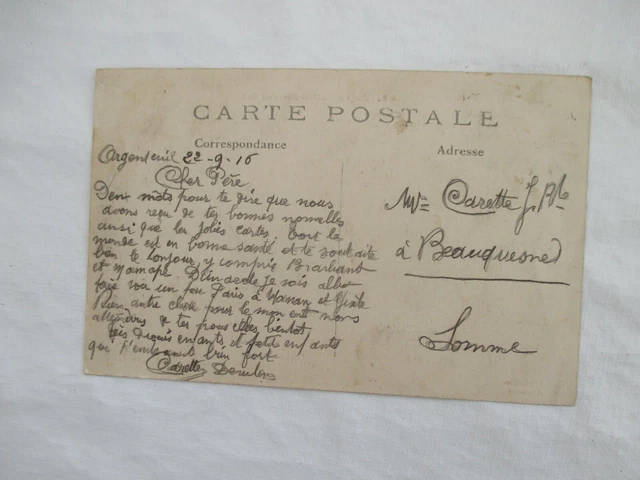 CARTE POSTALE
Correspondance
Adresse
Argenteuil 22-9-16
Cher Père
Deux mots pour te dire que nous
avons reçu de tes bonnes nouvelles
ainsi que les jolies cartes. Tout le
monde est en bonne santé et te souhaite
bien le bonjour, y compris
et maman. Dimanche je suis allé
faire voir un peu Paris à et
Rien autre chose pour le moment nous
attendons de tes nouvelles bientôt
Tes enfants et petits enfants
qui t'embrassent bien fort
Carette
Carette J.
à Beauquesne
Somme